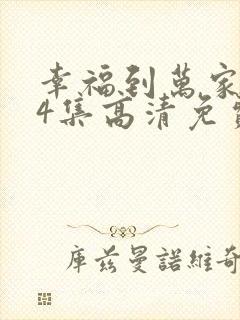 幸福到萬家
4集高清免費
庫茲曼諾維奇